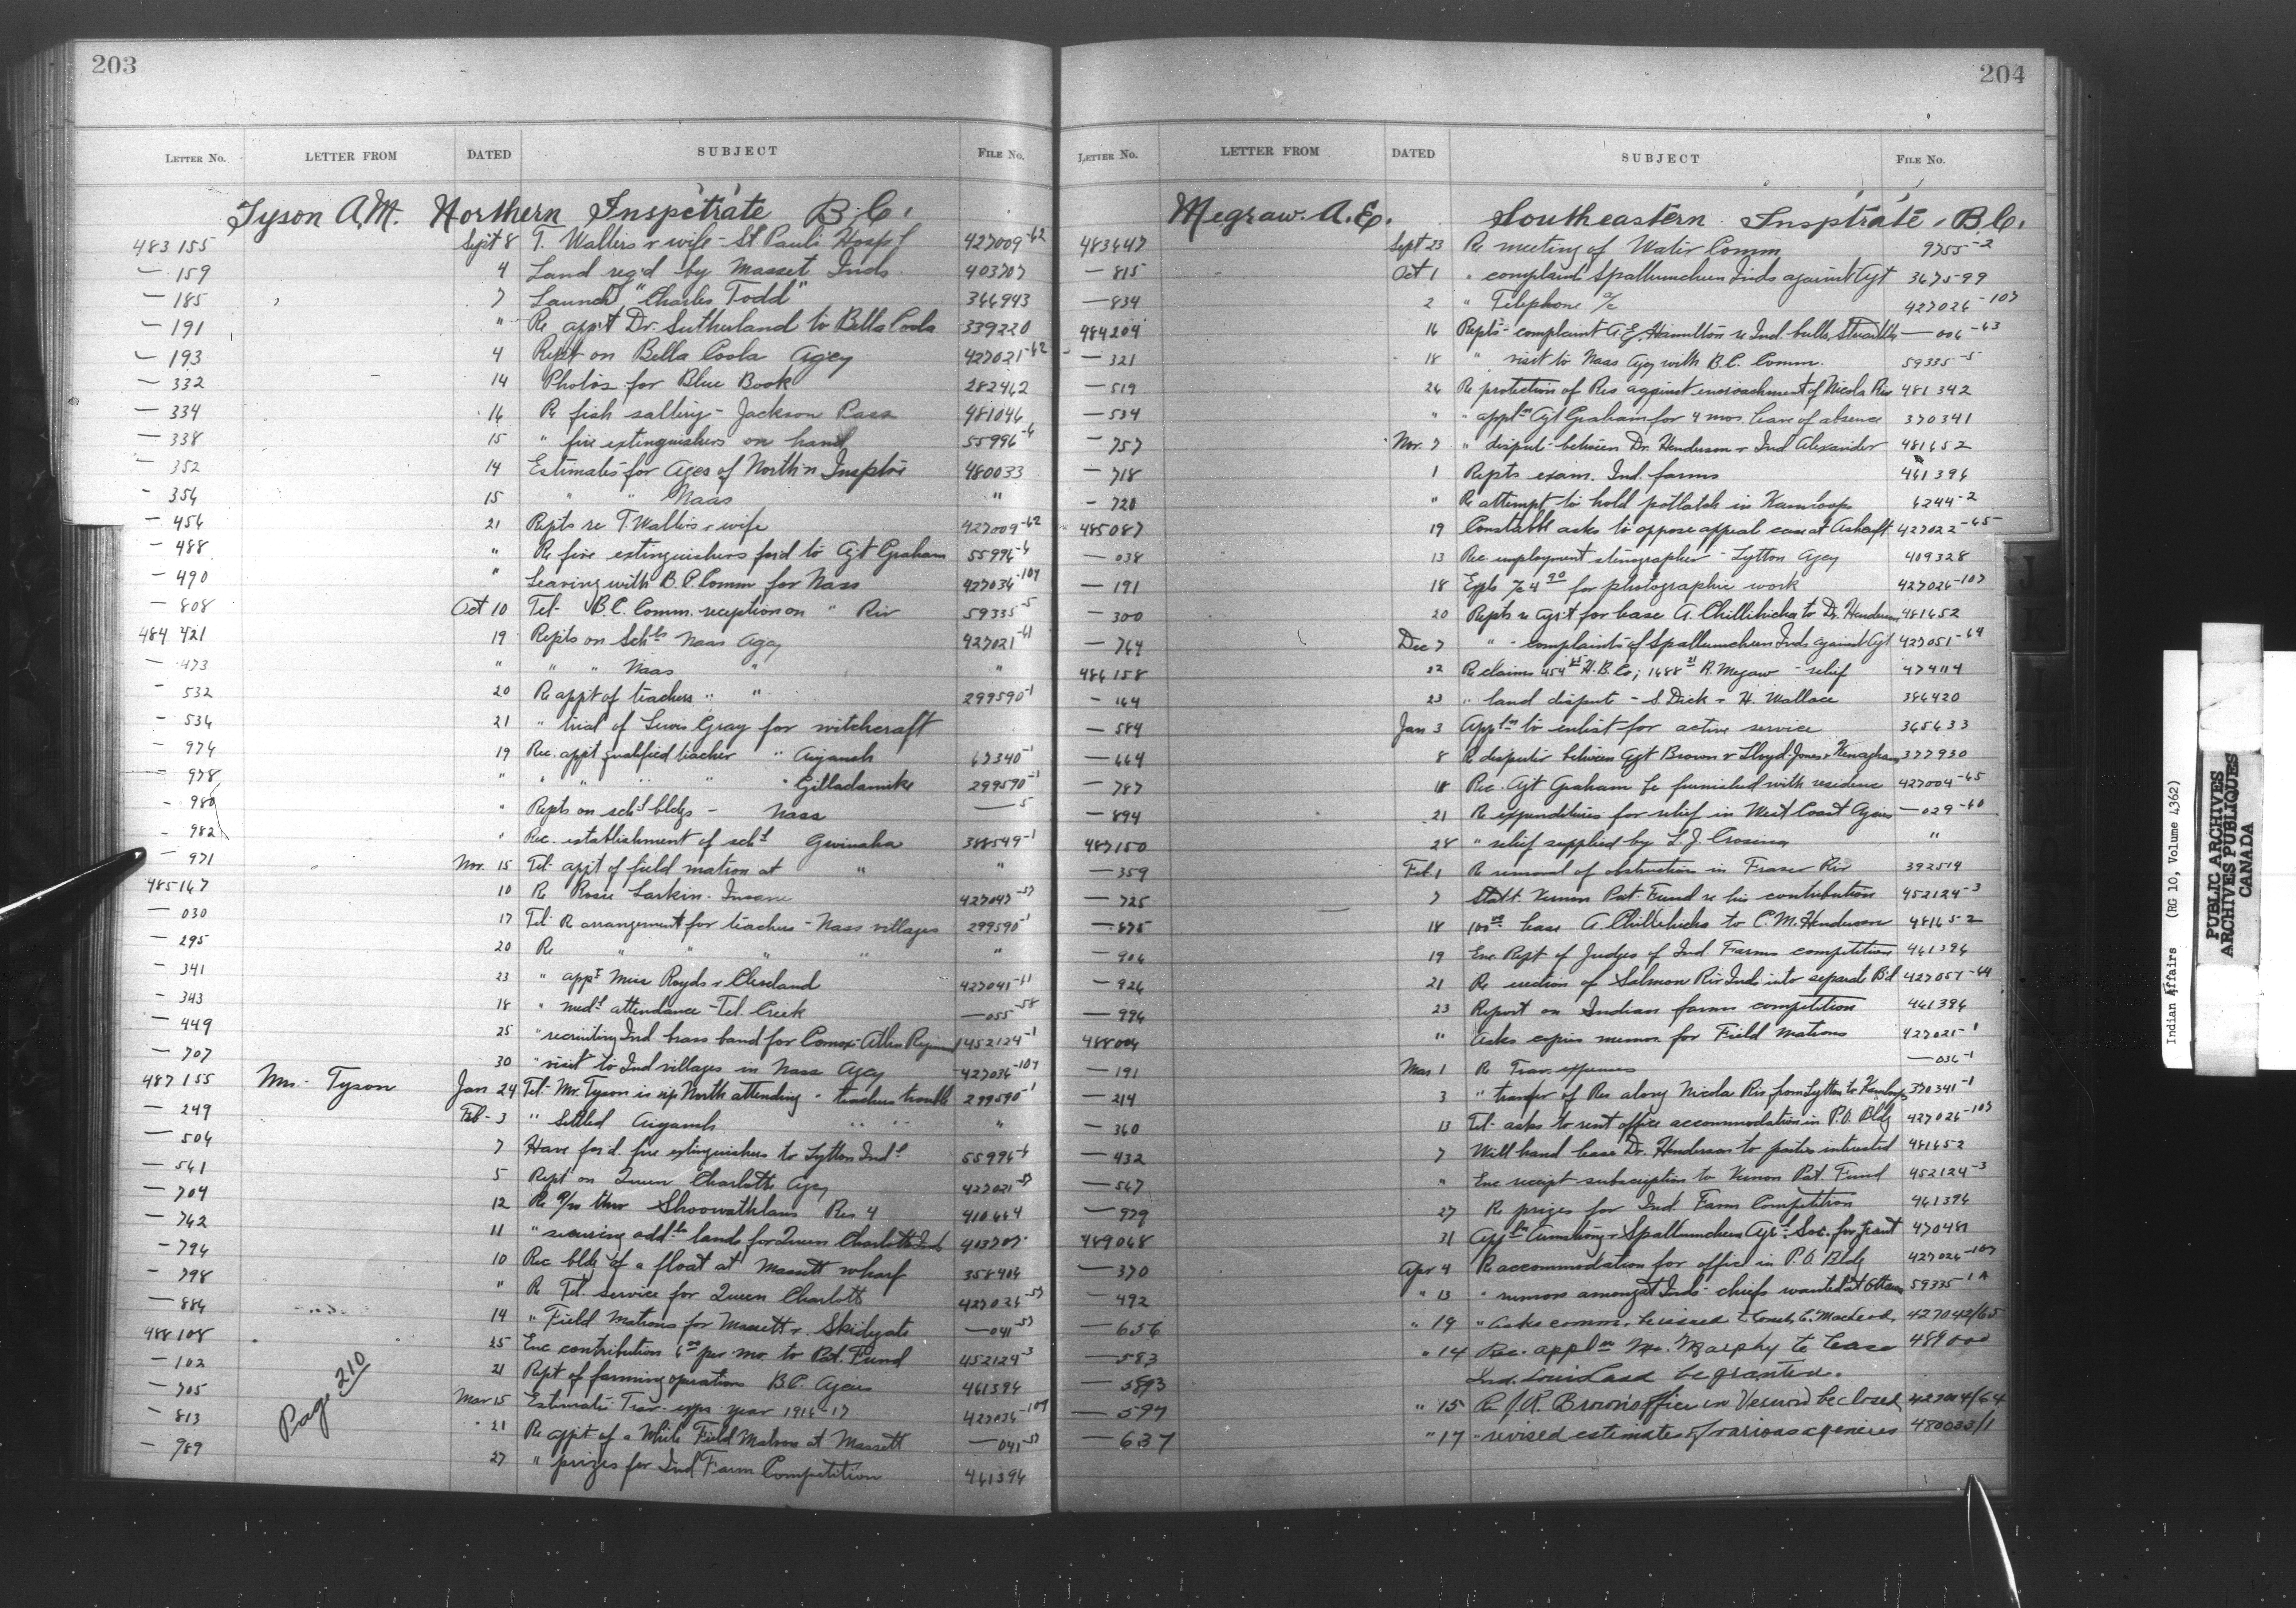 203
LETTER NO. LETTER FROM DATED SUBJECT FILE NO.
Tyson A.M. Northern Insp'c't'r'ate B.C.
483155 Sept 8 T. Walters & wife - St. Pauls Hosp'l 427009-62
— 159 4 Land reg'd by Masset Inds. 403707
— 185 7 Launch "Charles Todd" 366943
— 191 " Re app't Dr. Sutherland to Bella Coola 339220
— 193 4 Rept on Bella Coola Agcy 427021-62
— 332 14 Photos for Blue Book 282462
— 334 16 Re fish salting - Jackson Pass 481046
— 338 15 " fire extinguishers on hand 55996-6
— 352 14 Estimates for Agcs of North'n 480033
— 354 15 " " Naas "
— 456 21 Repts re T. Walters & wife 427009-62
— 488 " Re fire extinguishers for'd to Agt Graham 55996-6
— 490 " Leaving with B.C. Comm for Nass 427036-107
— 808 Oct 10 Tel- B.C. Comm. reception on " Riv 59335-5
484421 19 Repts on Schls Naas Agcy 427021-61
— 473 " " " Naas " "
— 532 20 Re appt of teachers " " 299590-1
— 534 21 " trial of Lewis Gray for witchcraft
— 974 19 Rec. app't qualified teacher " Aiyansh 67340-1
— 978 " " " " " " 299590-1
— 980 " Repts on sch'l bldgs - Nass — 5
— 982 " Rec. establishment of sch'l Gwinaha 388549-1
— 971 Nov. 15 Tel- app't of field matron at " "
485167 10 Re Rosie Larkin - Insane 427047-57
— 030 17 Tel- Re arrangement for teachers - Nass villages 299590-1
— 295 20 Re " " " "
— 341 23 " app't Miss Royds & Cleveland 427041-61
— 343 18 " med'l attendance - Tel. Creek — 055-58
— 449 25 " recruiting Ind brass band for Comox-Atlin Regiment 452124-1
— 707 30 " visit to Ind villages in Nass Agcy 427036-107
487155 Mrs. Tyson Jan 24 Tel- Mr. Tyson is up North attending - teachers trouble 299590-1
— 249 Feb - 3 " Settled Aiyansh " " "
— 504 7 Have for'd fire extinguishers to Lytton Ind'l 55996-6
— 561 5 Rept on Queen Charlotte Agcy 427021-57
— 704 12 Re R/W thro' Shoowahtlans Res 4 410664
— 762 11 " securing add'l lands for Queen Charlotte Inds 403707
— 794 10 Rec bldg of a float at Massett wharf 358404
— 798 " Re Tel. service for Queen Charlotte 427026-57
— 884 14 " Field Matrons for Massett & Skidgate — 041-57
488108 25 Enc contribution 6.00 per mo to Pat. Fund 452124-3
— 102 21 Rept of farming operations B.C. Agcies 461394
— 705 Mar 15 Estimates Trav- exps year 1916-17 427036-107
— 813 21 Re appt of a White Field Matron at Massett — 041-57
— 989 27 " prizes for Ind Farm Competition 461394
Page 210
204
LETTER NO. LETTER FROM DATED SUBJECT FILE NO.
Megraw. A.E. Southeastern Insp't'r'ate, B.C.
483647 Sept 23 Re meeting of Water Comm 9755-2
— 815 Oct 1 " complaint Spallumcheen Inds against Agt 367599
— 834 2 " Telephone a/c 427026-107
484204 16 Repts - complaint A.E. Hamilton re Ind. bulls — 006-63
— 321 18 " visit to Naas Agcy with B.C. Comm. 59335-5
— 519 26 Re protection of Res against encroachment of Nicola Riv 481342
— 534 " " appl'n Agt Graham for 4 mos. leave of absence 370341
— 757 Nov. 7 " dispute between Dr. Henderson & Ind Alexander 481652
— 718 1 Repts exam. Ind. farms 461394
— 720 " Re attempt to hold potlatch in Kamloops 6244-2
485087 19 Constable asks to oppose appeal case at Ashcroft 427022-65
— 038 13 Rec employment stenographer - Lytton Agcy 409328
— 191 18 Expls a/c 4.90 for photographic work 427026-107
— 300 20 Repts re agr't for lease A. Chillihichea to Dr. Henderson 481652
— 764 Dec 7 " - complaints of Spallumcheen Inds against Agt 427051-64
486158 22 Re claims 454.85 H.B. Co; 1688.21 R. Megaw - relief 474114
— 164 23 " land dispute - S. Dick & H. Wallace 386420
— 584 Jan 3 Appl'n to enlist for active service 365633
— 664 8 Re dispute between Agt Brown & Lloyd-Jones & 377930
— 787 18 Rec. Agt Graham be furnished with residence 427004-65
— 894 21 Re expenditures for relief in West Coast Agcies — 029-60
487150 28 " relief supplied by L.J. Crosina "
— 359 Feb. 1 Re removal of obstruction in Fraser Riv 392514
— 725 7 Statt. Vernon Pat Fund re his contribution 452124-3
— 875 18 100.00 lease A. Chillihichea to C.M. Henderson 481652
— 904 19 Enc. Rept of Judges of Ind Farms competition 461394
— 926 21 Re erection of Salmon Riv Inds into separate B'd 427051-64
— 994 23 Report on Indian farms competition 461394
488004 " Asks copies memos for Field Matrons 427025-1
— 191 Mar 1 Re Trav. expenses — 036-1
— 214 3 " transfer of Res along Nicola Riv from Lytton to Kamloops 370341-1
— 360 13 Tel- asks to rent office accommodation in P.O. Bldg 427026-107
— 432 7 Will hand lease Dr. Henderson to parties interested 481652
— 567 " Enc receipt - subscription to Vernon Pat. Fund 452124-3
— 979 27 Re prizes for Ind. Farm Competition 461394
489068 31 Appl'n Armstrong & Spallumcheen Agr'l Soc. for grant 470481
— 370 Apr 4 Re accommodation for office in P.O. Bldg 427026-107
— 492 " 13 " rumors amongst Inds - chiefs wanted at Ottawa 59335-1A
— 656 " 19 " Asks comm. be issued to Const. C. MacLeod 427042/65
— 583 " 14 Rec. appl'n Mr. Murphy to lease 489000
— 5893 Ind. Louis land be granted.
— 597 " 15 Re J.R. Brown's office in Vernon be closed 427014/64
— 637 " 17 - revised estimates of various agencies 480033/1
Indian Affairs (RG 10, Volume 4362)
PUBLIC ARCHIVES
ARCHIVES PUBLIQUES
CANADA